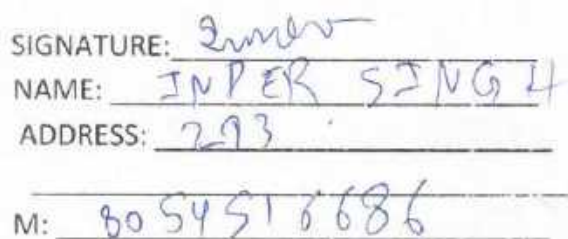 SIGNATURE:
NAME: INDER SINGH
ADDRESS: 293
M: 8054516686